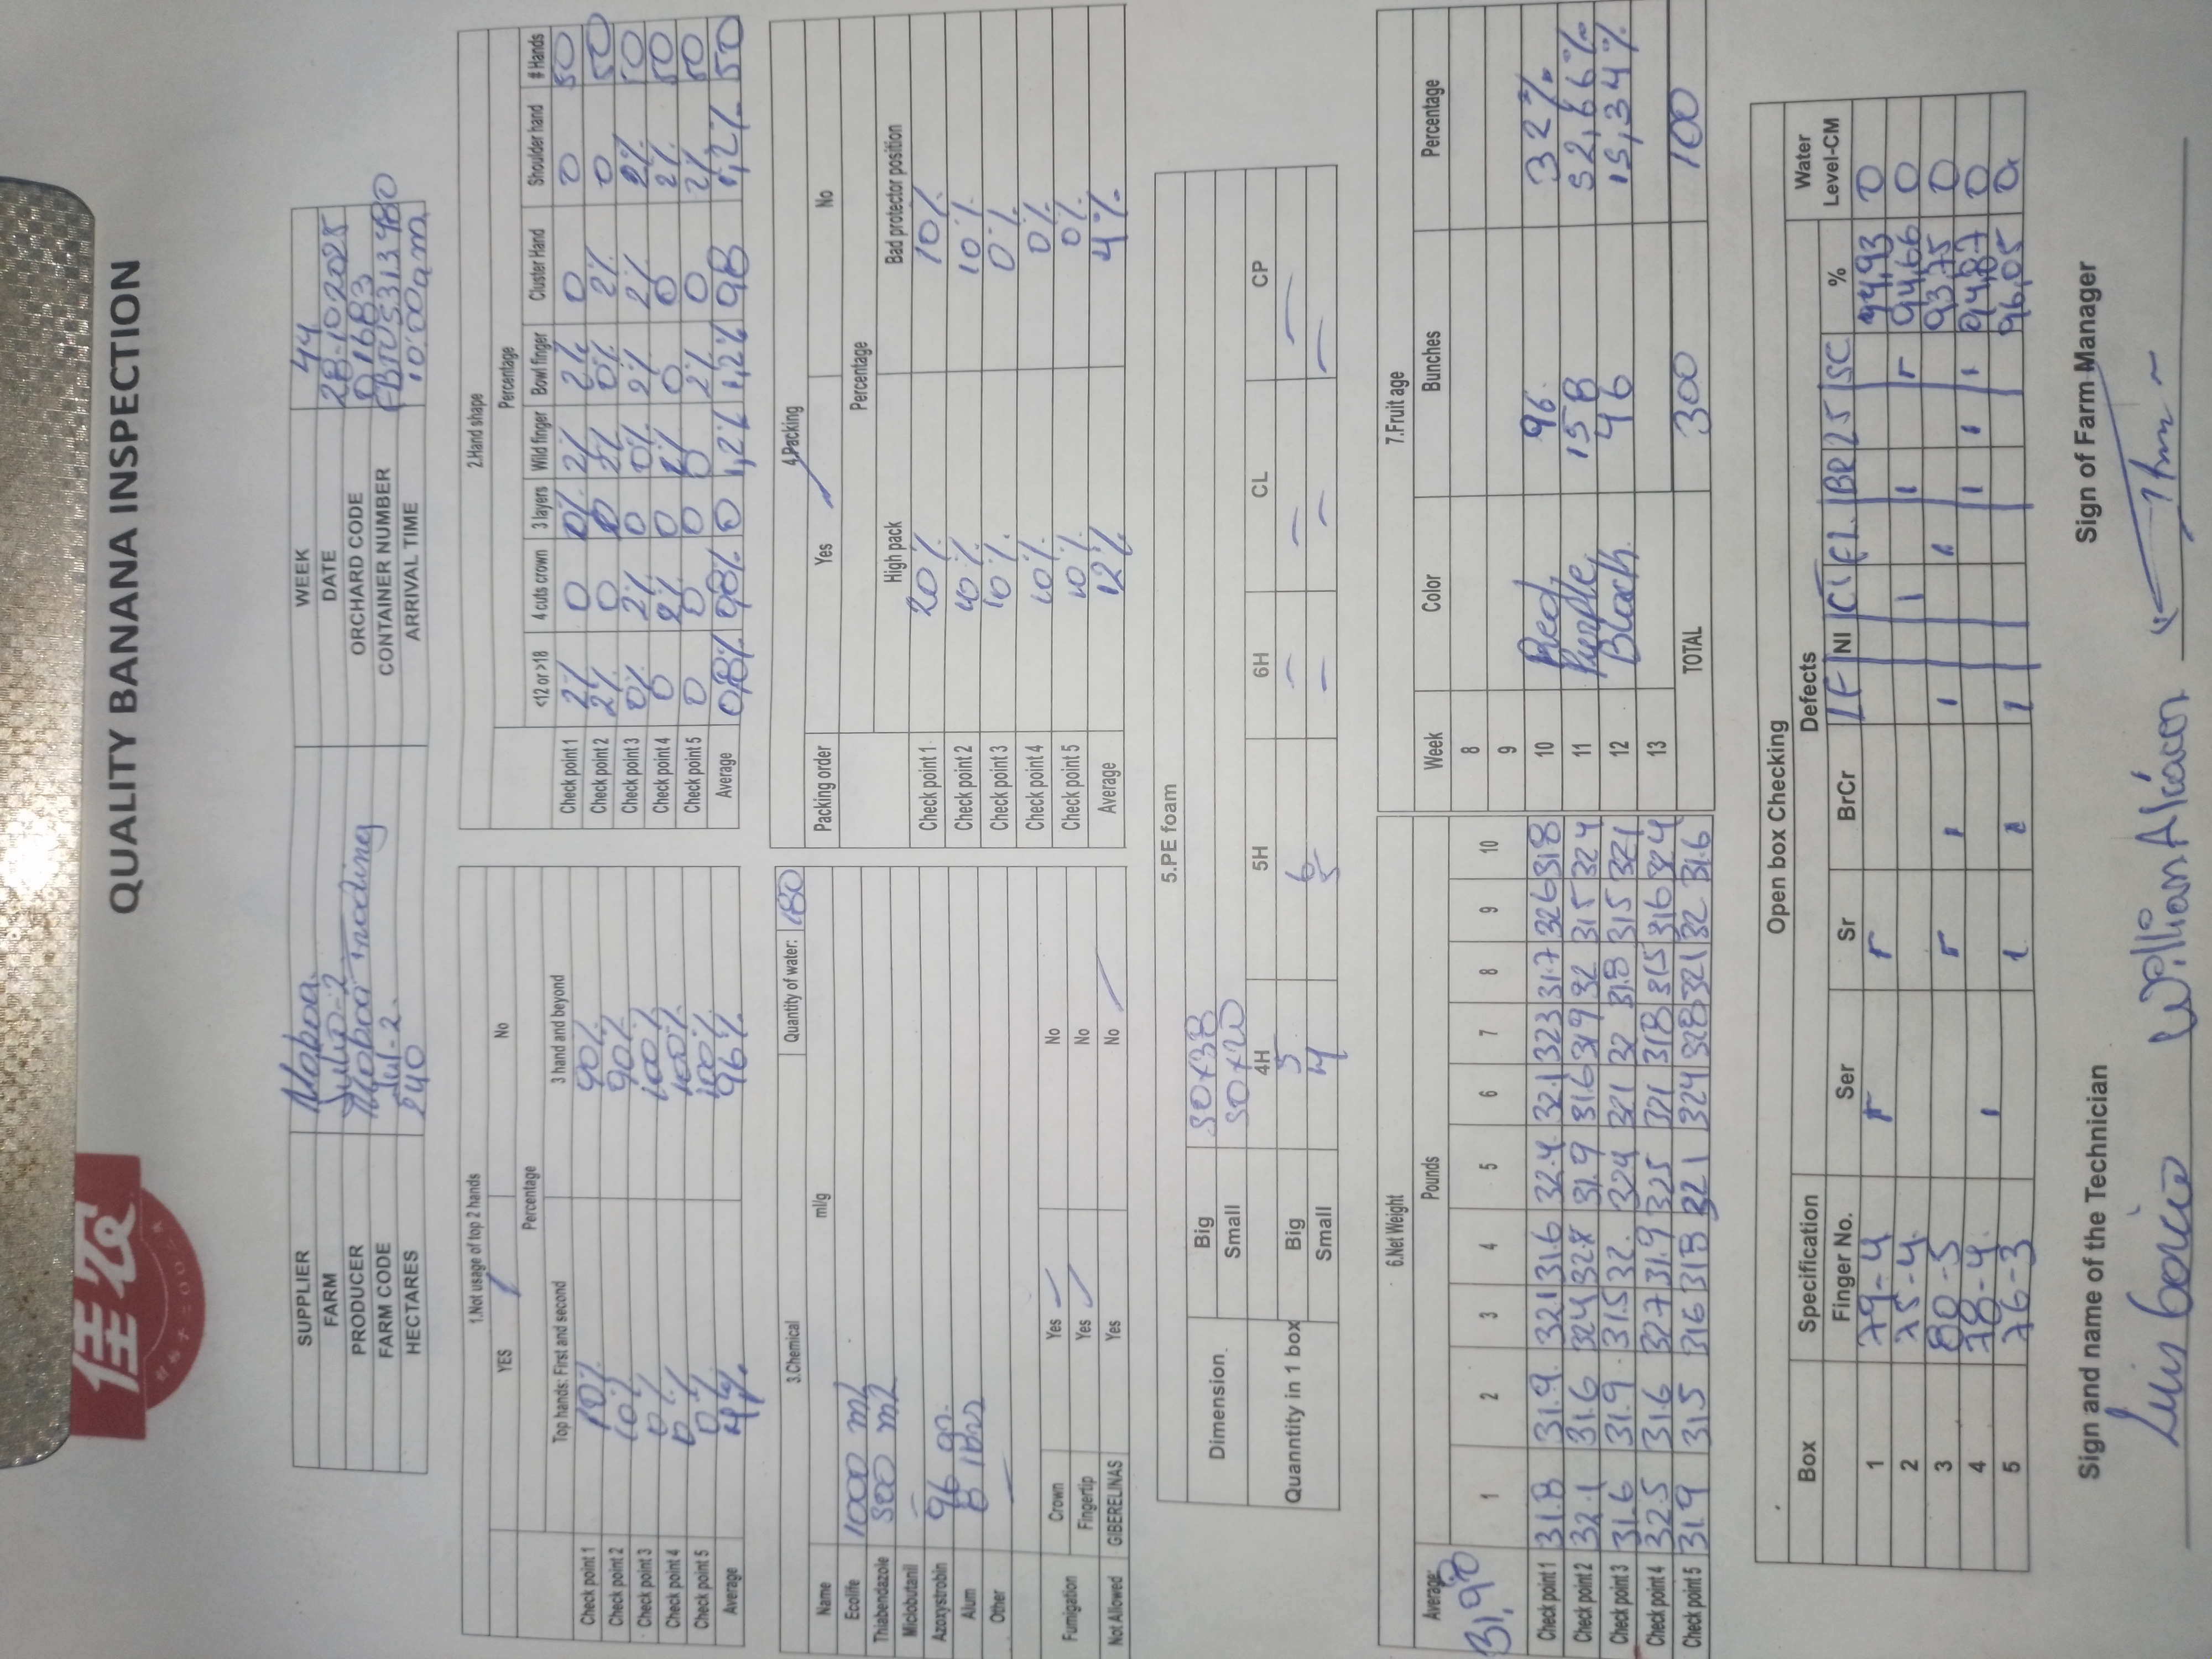 佳农
QUALITY BANANA INSPECTION
SUPPLIER Moboa. WEEK 44
FARM Julio-2. DATE 28-10 2025
PRODUCER Moboa Trading ORCHARD CODE 01683
FARM CODE Jul-2. CONTAINER NUMBER
HECTARES 240 ARRIVAL TIME 10:00am
1.Not usage of top 2 hands
YES No
Percentage
Top hands: First and second 3 hand and beyond
Check point 1 10% 90%
Check point 2 10% 90%
Check point 3 0% 100%
Check point 4 0% 100%
Check point 5 0% 100%
Average 4% 96%
2.Hand shape
Percentage
<12 or >18 4 cuts crown 3 layers Wild finger Bowl finger Cluster Hand Shoulder hand # Hands
Check point 1 2% 0 0% 2% 2% 0 0 50
Check point 2 2% 0 0 2% 0% 2% 0 50
Check point 3 0% 2% 0 0% 2% 2% 2% 50
Check point 4 0 2% 0 2% 0 0 2% 50
Check point 5 0 0 0 0 2% 0 2% 50
Average 0,8% 0,8% 0 1,2% 1,2% 0,8 1,2% 50
3.Chemical Quantity of water: 180
Name ml/g
Ecolife 1000 ml
Thiabendazole 500 ml
Miclobutanil –
Azoxystrobin 96 gr.
Alum 8 lbrs
Other —
Fumigation Crown Yes No
Fingertip Yes No
Not Allowed GIBERELINAS Yes No
4.Packing
Packing order Yes No
Percentage
High pack Bad protector position
Check point 1 20% 10%
Check point 2 10% 10%
Check point 3 10% 0%
Check point 4 10% 0%
Check point 5 10% 0%
Average 12% 4%
5.PE foam
Dimension Big 50x38
Small 50x20
4H 5H 6H CL CP
Quanntity in 1 box Big 5 6 – – –
Small 4 5 – – –
6.Net Weight
Average: 31,98 Pounds
1 2 3 4 5 6 7 8 9 10
Check point 1 31.8 31.9 321 31.6 32.4 32.1 323 31.7 326 318
Check point 2 32.1 31.6 324 32.8 31.9 31.6 319 32 315 324
Check point 3 31.6 31.9 31.5 32. 324 321 32 31.8 315 321
Check point 4 32.5 31.6 327 31.9 325 321 318 315 316 324
Check point 5 31.9 315 316 318 321 324 328 321 32 31.6
7.Fruit age
Week Color Bunches Percentage
8
9
10 Red, 96 32%
11 Purple, 158 52,66%
12 Black. 46 15,34%
13
TOTAL 300 100
Open box Checking
Box Specification Defects Water
Finger No. Ser Sr BrCr LF NI CT FL. BR 25 SC % Level-CM
1 79-4 94,93 0
2 75-4. 1 1 94,66 0
3 80-5 1 1 1 93,75 0
4 78-4. 1 1 1 1 94,87 0
5 76-3 1 1 1 96,05 0
Sign and name of the Technician Sign of Farm Manager
Luis Garcia Willian Alcácer